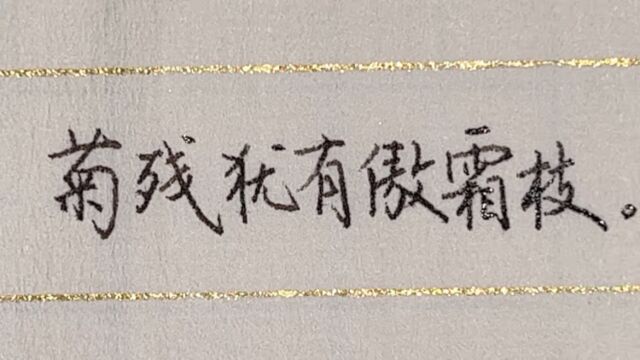 菊残犹有傲霜枝。